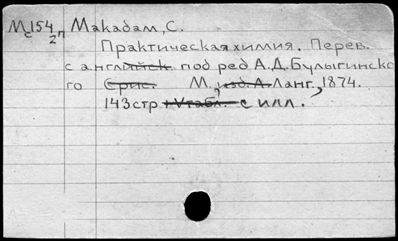 М 154/2 п Макадам, С.
Практическая химия. Перев.
с английск под ред А. Д. Булыгинско
го М., изд. А. Ланг., 1874.
143 стр + V табл. с илл.